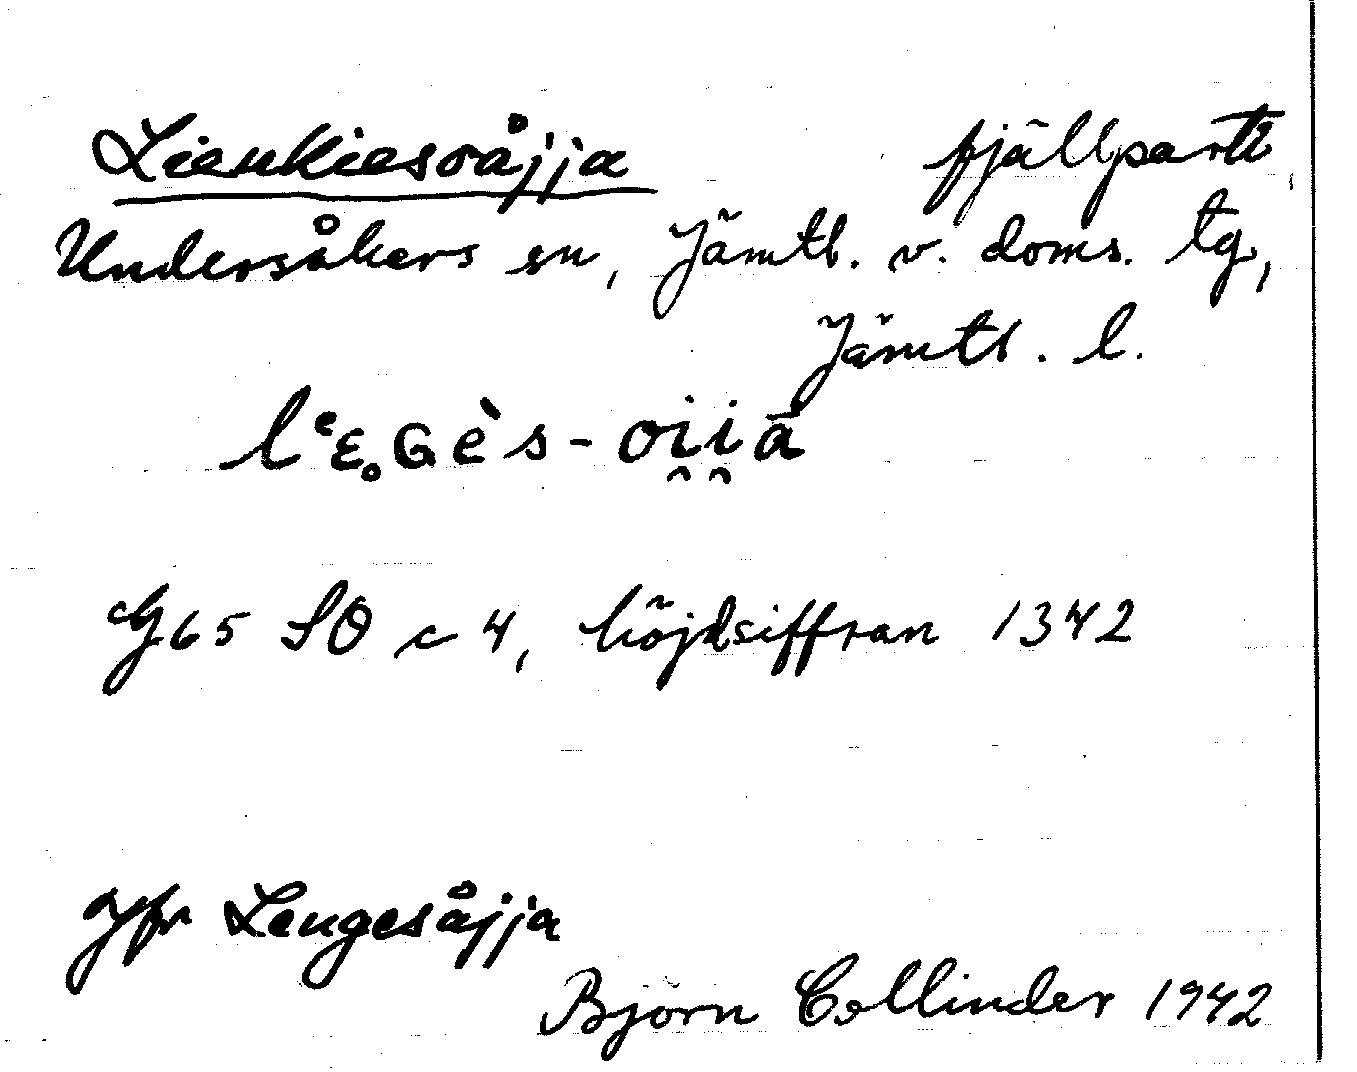 Lienkiesoåjja fjällparti
Undersåkers sn, Jämtl. v. doms. tg,
Jämtl. l.
lᵋɛ̥ɢès-oi̯i̯ā
G65 SO c 4, höjdsiffran 1342
Jfr Lengesåjja
Björn Collinder 1942